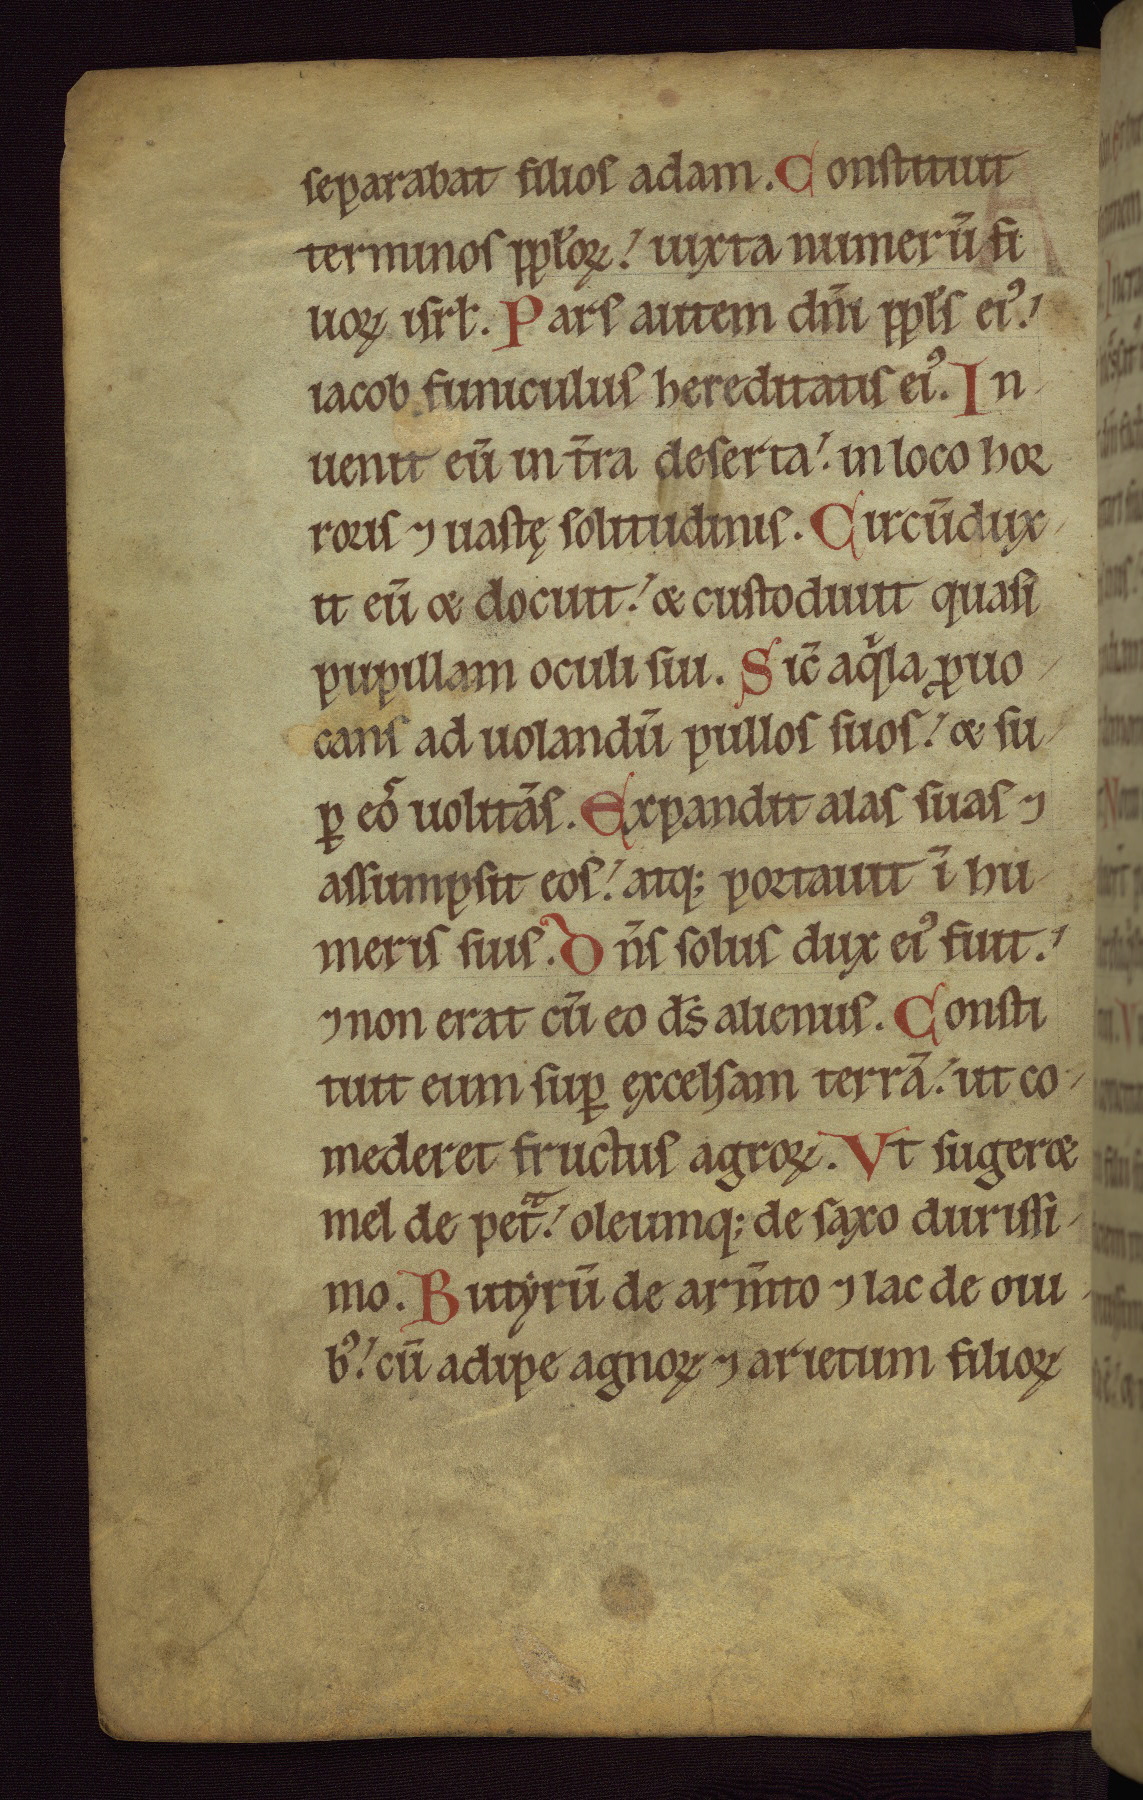 separabat filios adam. Constituit
terminos ppl̄oꝝ! iuxta numerū fi
lioꝝ isrl̄. Pars autem dn̄i ppl̄s eiꝰ!
iacob funiculus hereditatis eiꝰ. In
uenit eū in t̄ra deserta! in loco hor
roris ⁊ uastę solitudinis. Circūdux
it eū & docuit! & custodiuit quasi
pupillam oculi sui. Sic̄ aqͥla ꝓuo
cans ad uolandū pullos suos! & su
ꝑ eos uolitās. Expandit alas suas ⁊
assumpsit eos! atq; portauit ī hu
meris suis. Dn̄s solus dux eiꝰ fuit!
⁊ non erat cū eo ds̄ alienus. Consti
tuit eum suꝑ excelsam terrā! ut co
mederet fructus agroꝝ. Vt suger&
mel de petᷓ! oleumq; de saxo durissi
mo. Butyrū de arm̄to ⁊ lac de oui
bꝰ! cū adipe agnoꝝ ⁊ arietum filioꝝ